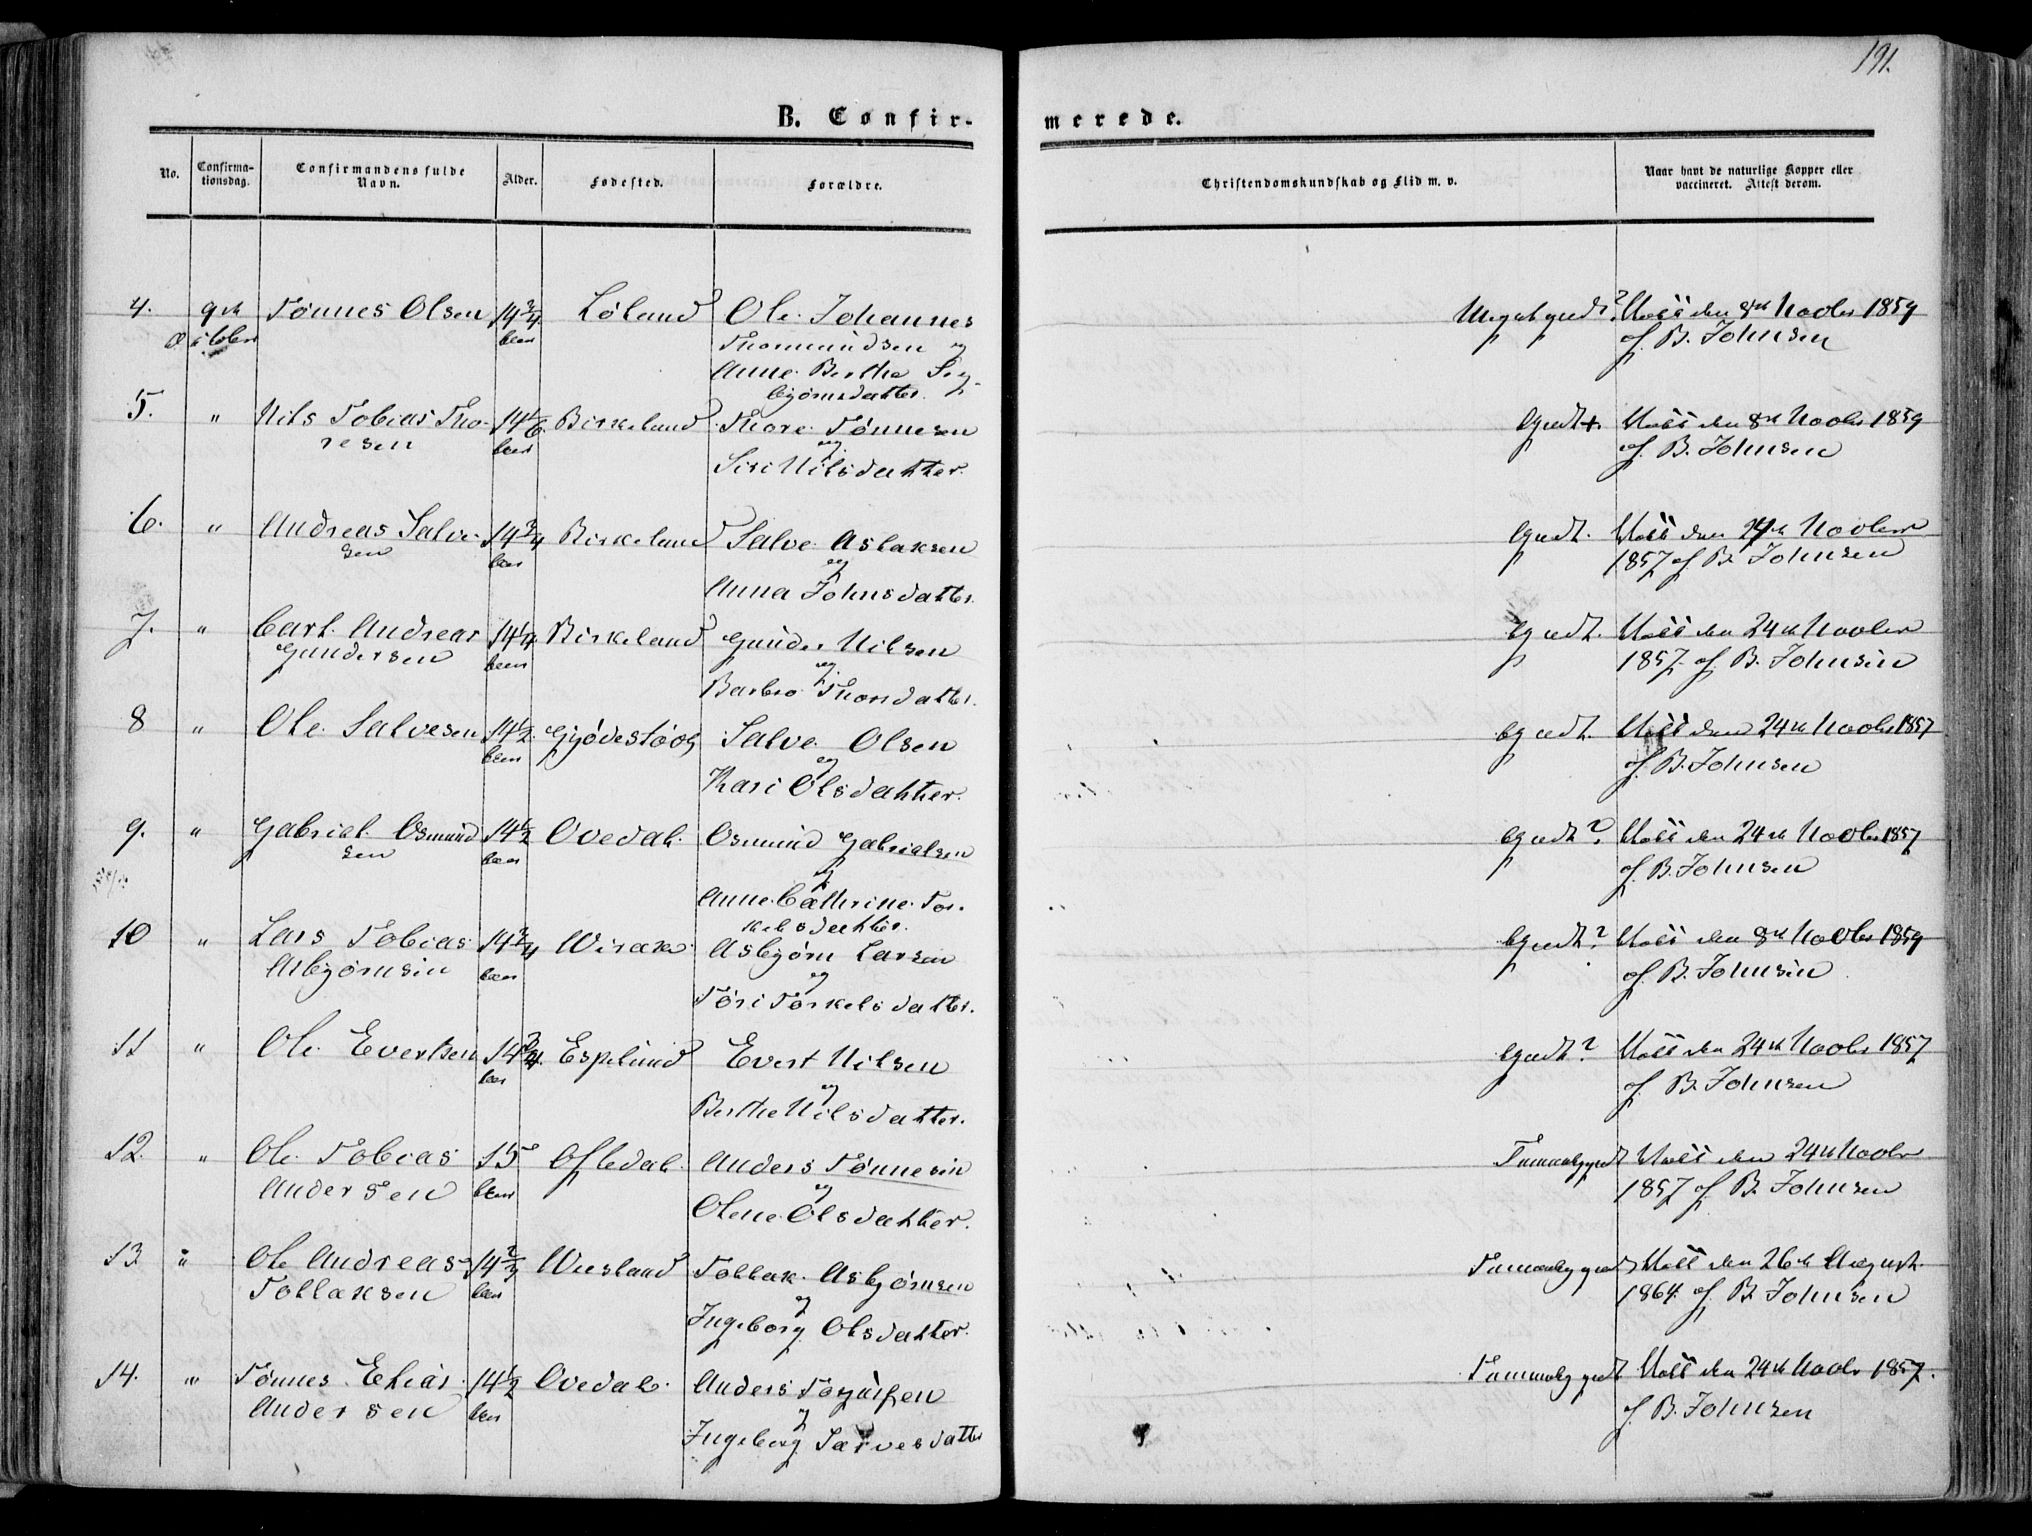 191.
B. Confir-
merede.
No.
Confirma-
tionsdag.
Confirmandens fulde
Navn.
Alder.
Fødested.
Forældre.
Christendomskundskab og Flid m. v.
Naar havt de naturlige Kopper eller
vaccineret. Attest derom.
4. 9de Tønnes Olsen 14 3/4 Løland Ole Johannes Meget godt? den 8de Novbr 1859
October Thormundsen og af B. Johnsen
Anne Berthe Sig-
bjørnsdatter.
5. " Nils Tobias Tho- 14 1/6 Birkeland Thore Tønnesen godt+. den 8de Novbr 1859
resen og af B. Johnsen
Siri Nilsdatter.
6. " Andreas Salve- 14 3/4 Birkeland Salve Aslaksen godt. den 24de Novber
sen og 1857 af B. Johnsen
Anna Johnsdatter.
7. " Carl Andreas 14 1/4 Birkeland Gunder Nilsen godt. den 24de Novber
Gundersen og 1857. af B. Johnsen
Barbro Thorsdatter.
8 " Ole Salvesen 14 1/2 Salve Olsen godt. den 24de Novbr 1857
og af B. Johnsen
Kari Olsdatter.
9. " Gabriel Osmund 14 1/2 Ovedal. Osmund Gabrielsen godt? den 24de Novbr 1857
sen og af B. Johnsen
Anne Cathrine Tor-
kelsdatter.
10 " Lars Tobias 14 3/4 Virak Asbjørn Larsen godt? den 8de Novbr 1859
Asbjørnsen og af B. Johnsen
Tori Torkelsdatter.
11 " Ole Evertsen 14 3/4. Espelund Evert Nilsen godt? den 24de Novbr 1857
og af B. Johnsen
Berthe Nilsdatter.
12. " Ole Tobias 15 Ofledal. Anders Tønnesen Temmelig godt den 24de Novbr
Andersen og 1857 af B. Johnsen
Olene Olsdatter.
13. " Ole Andreas 14 2/3 Tollak Asbjørnsen Temmelig godt den 26de August
Tollaksen og 1864. af B. Johnsen
Ingeborg Olsdatter.
14. " Tønnes Elias 14 1/2 Ovedal. Anders Temmelig godt den 24de Novbr 1857.
Andersen og af B. Johnsen
Ingeborg Særvesdatter